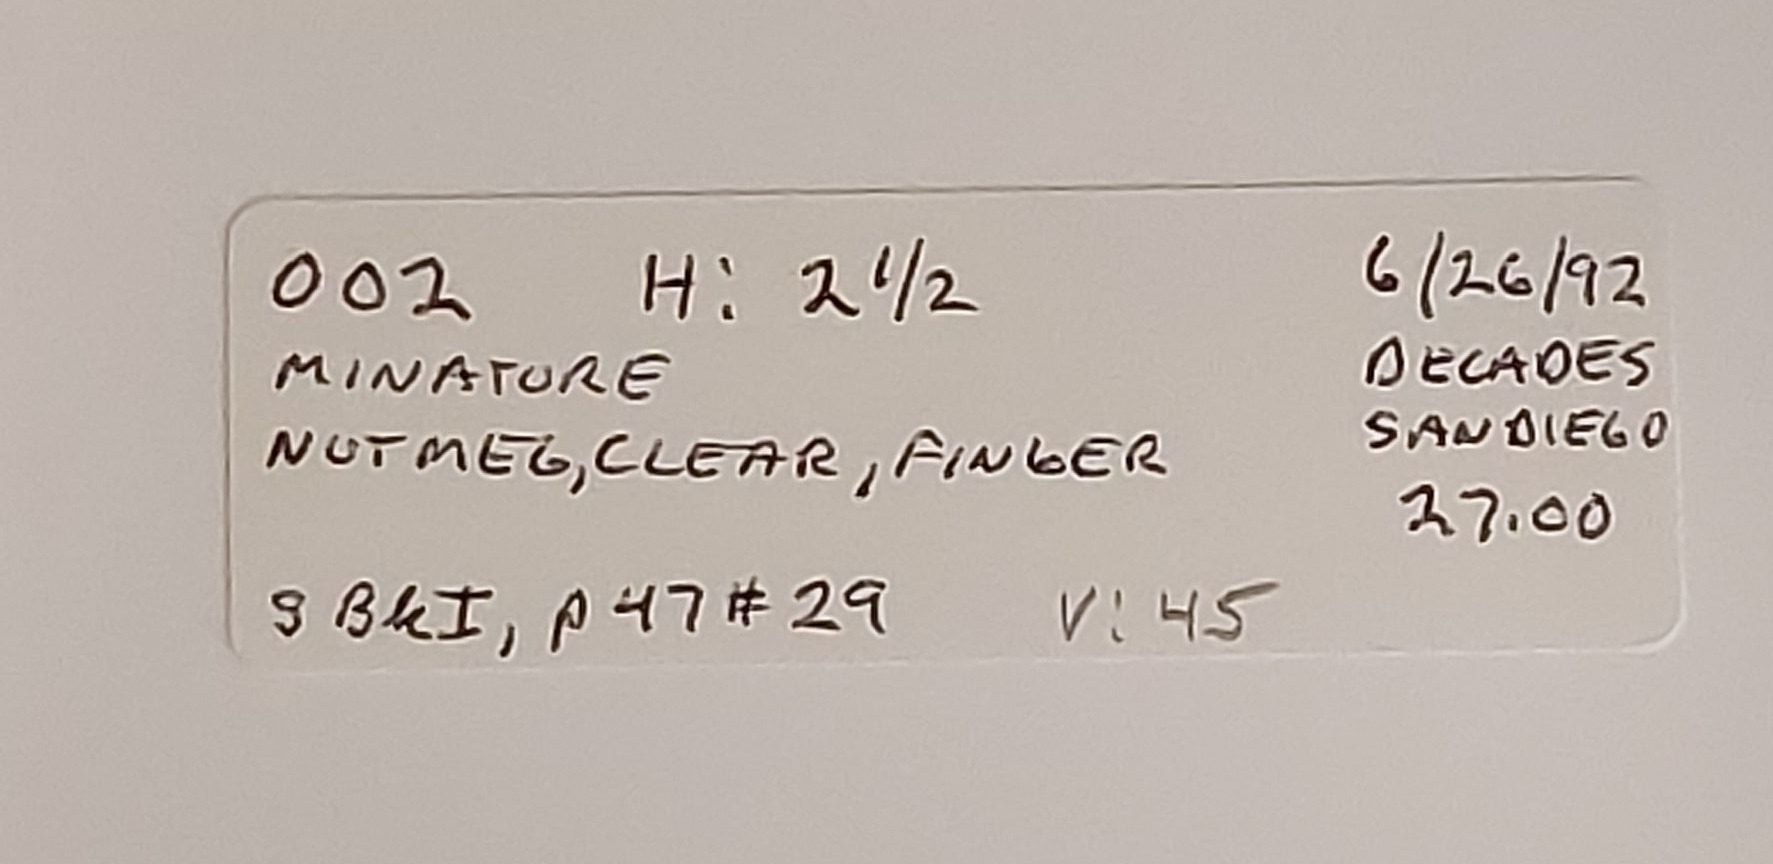 002 H: 2 1/2 6/26/92
MINATURE DECADES
NUTMEG, CLEAR, FINGER SAN DIEGO
27.00
S BkI, p 47 # 29 V: 45